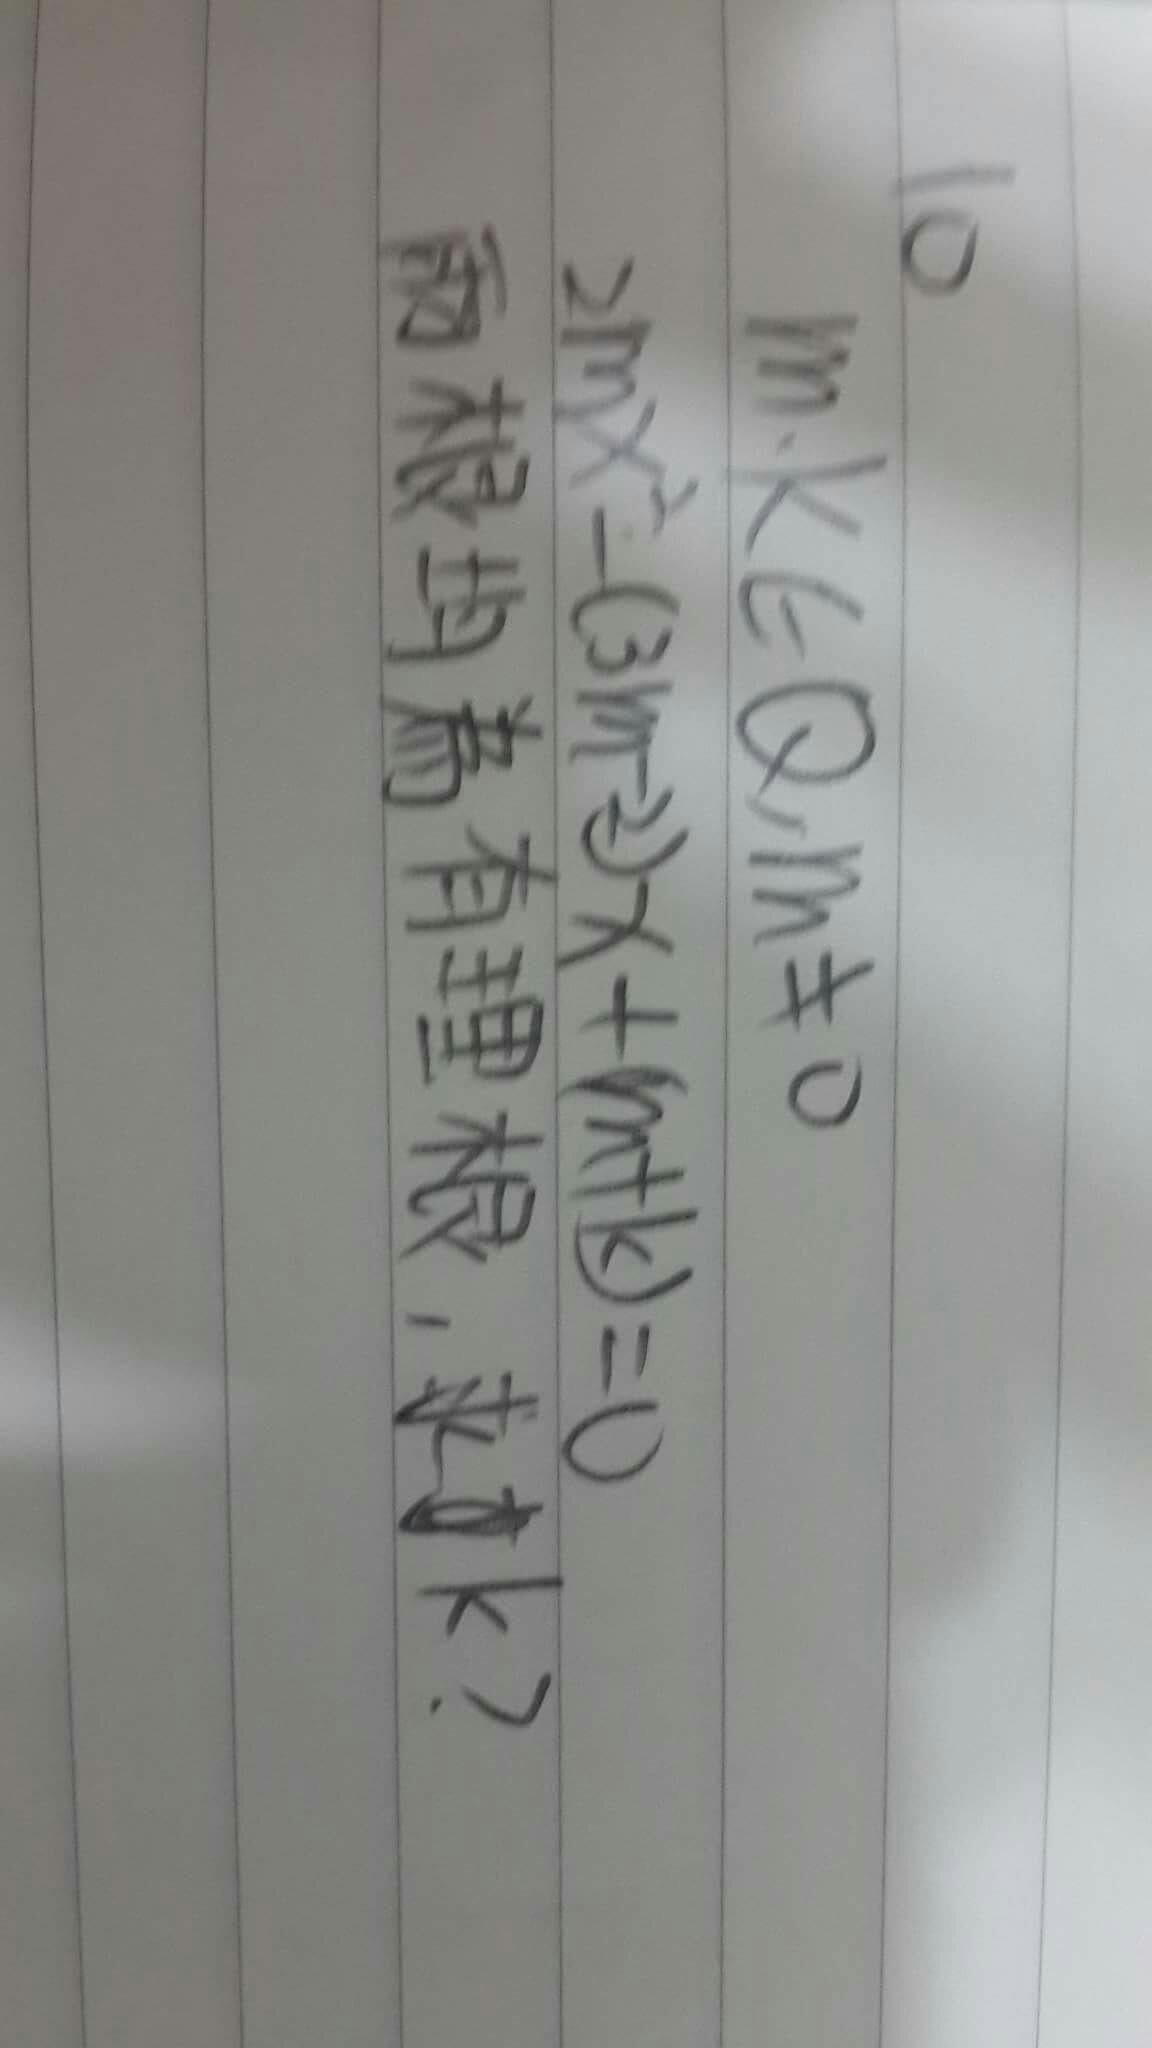 10
m.k∈Q,m≠0
2mx²-(3m-2)x+(m+k)=0
兩根均為有理根,求k?